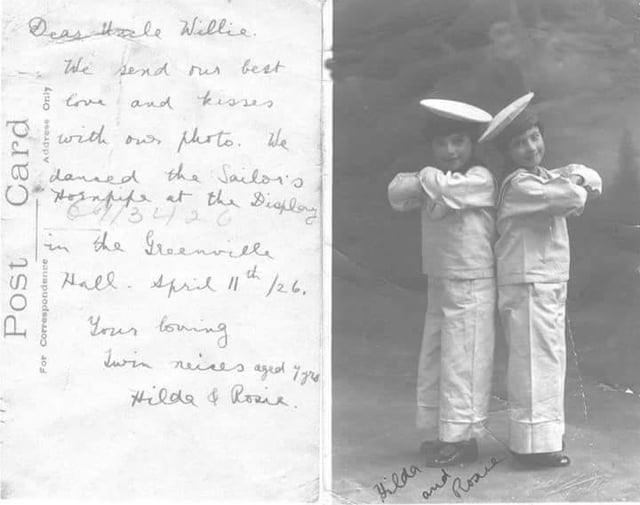 Dear Uncle Willie.
We send our best
love and kisses
with our photo. We
danced the Sailor's
Hornpipe at the Display
in the Greenville
Hall. April 11th /26.
Your loving
Twin neises aged 7 yrs
Hilda & Rosie.
Post Card
For Correspondence
Address Only
Hilda
and
Rosie